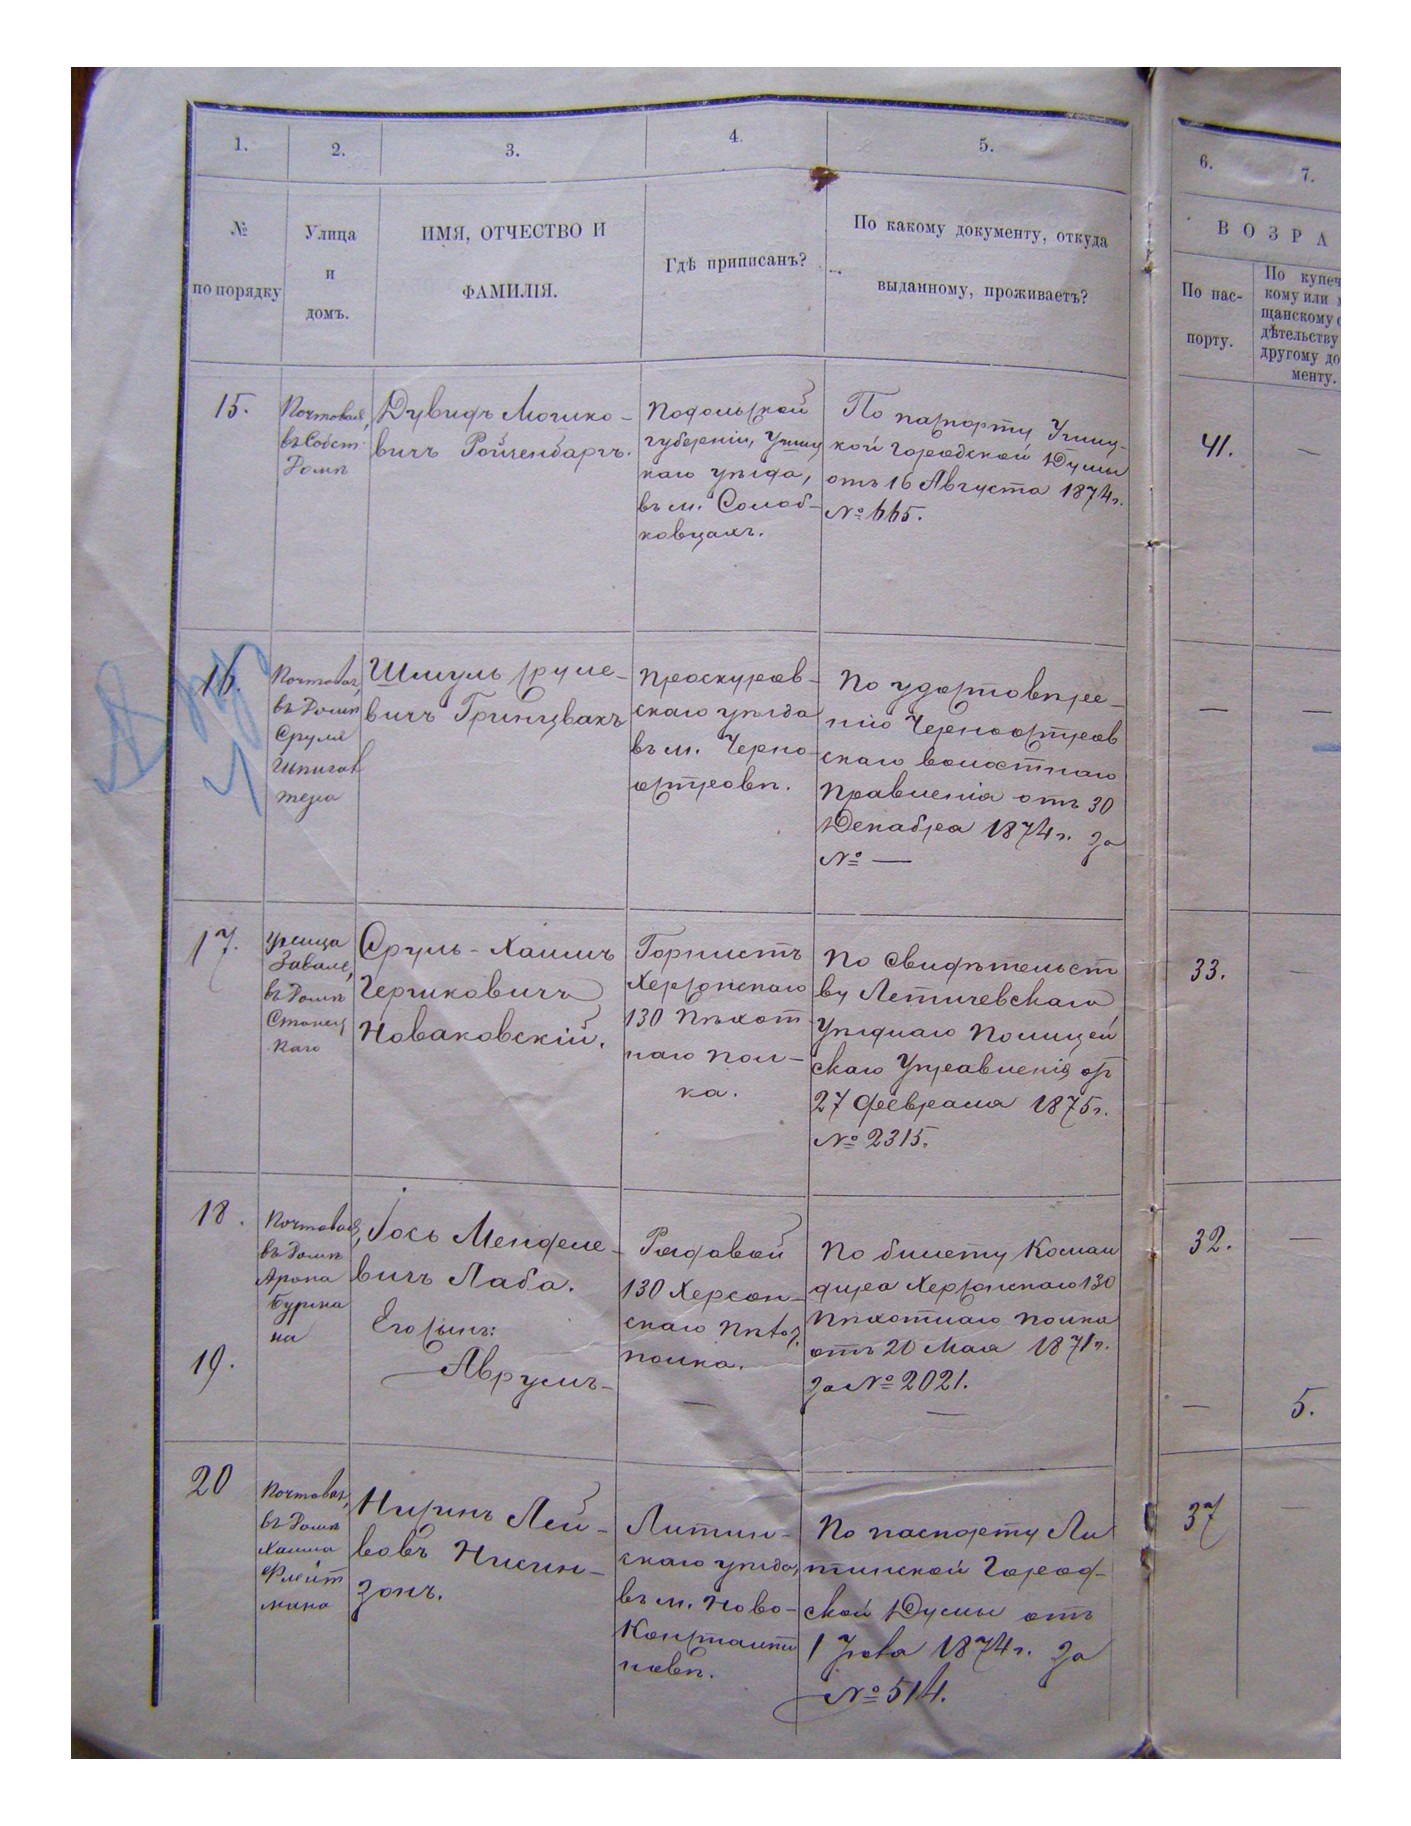 1.
2.
3.
4.
5.
6.
7.
№
по порядку
Улица
и
домъ.
ИМЯ, ОТЧЕСТВО И
ФАМИЛІЯ.
Гдѣ приписанъ?
По какому документу, откуда
выданному, проживаетъ?
ВОЗРА
По пас-
порту.
По купеч
кому или
щанскому с
дѣтельству
другому до
менту.
15.
Почтовая,
въ Собст
Домѣ
Дувидъ Мошко-
вичъ Ройзенбаргъ.
Подольской
губерніи, Ушиц
каго уѣзда,
въ м. Солоб-
ковцахъ.
По паспорту Ушиц-
кой Городской Думы
отъ 16 Августа 1874 г.
№ 665.
41.
—
16.
Почтовая,
въ Домѣ
Сруля
Шмуль Сруле-
вичъ Гринцвакъ
Проскуров-
скаго уѣзда
въ м. Черно-
островѣ.
По удостовѣре-
нію Черноостров
скаго волостнаго
Правленія отъ 30
Декабря 1874 г. за
№ —
—
—
17.
Улица
Завале,
въ Домѣ
Станец
каго
Сруль-Хаимъ
Гершковичъ
Новаковскій.
Горнистъ
Херсонскаго
130 Пѣхот
наго пол-
ка.
По Свидѣтельст
ву Летичевскаго
Уѣзднаго Полицей
скаго Управленія от
27 Февраля 1875 г.
№ 2315.
33.
—
18.
Почтовая,
въ Домѣ
Арона
Бурма
на
Іось Менделе-
вичъ Лаба.
Рядовой
130 Херсон-
скаго Пѣхо.
полка.
По билету Коман
дира Херсонскаго 130
Пѣхотнаго полка
отъ 20 Мая 1871 г.
за № 2021.
32.
—
19.
Его сынъ:
Аврумъ-
—
—
—
5.
20
Почтовая,
въ Домѣ
Хаима
Флейт
мана
Нисинъ Лей-
бовъ Нисин-
зонъ.
Литин-
скаго уѣзда,
въ м. Ново-
Константи
новѣ.
По паспорту Ли
тинской Город-
ской Думы отъ
1 Іюля 1874 г. за
№ 514.
37
—